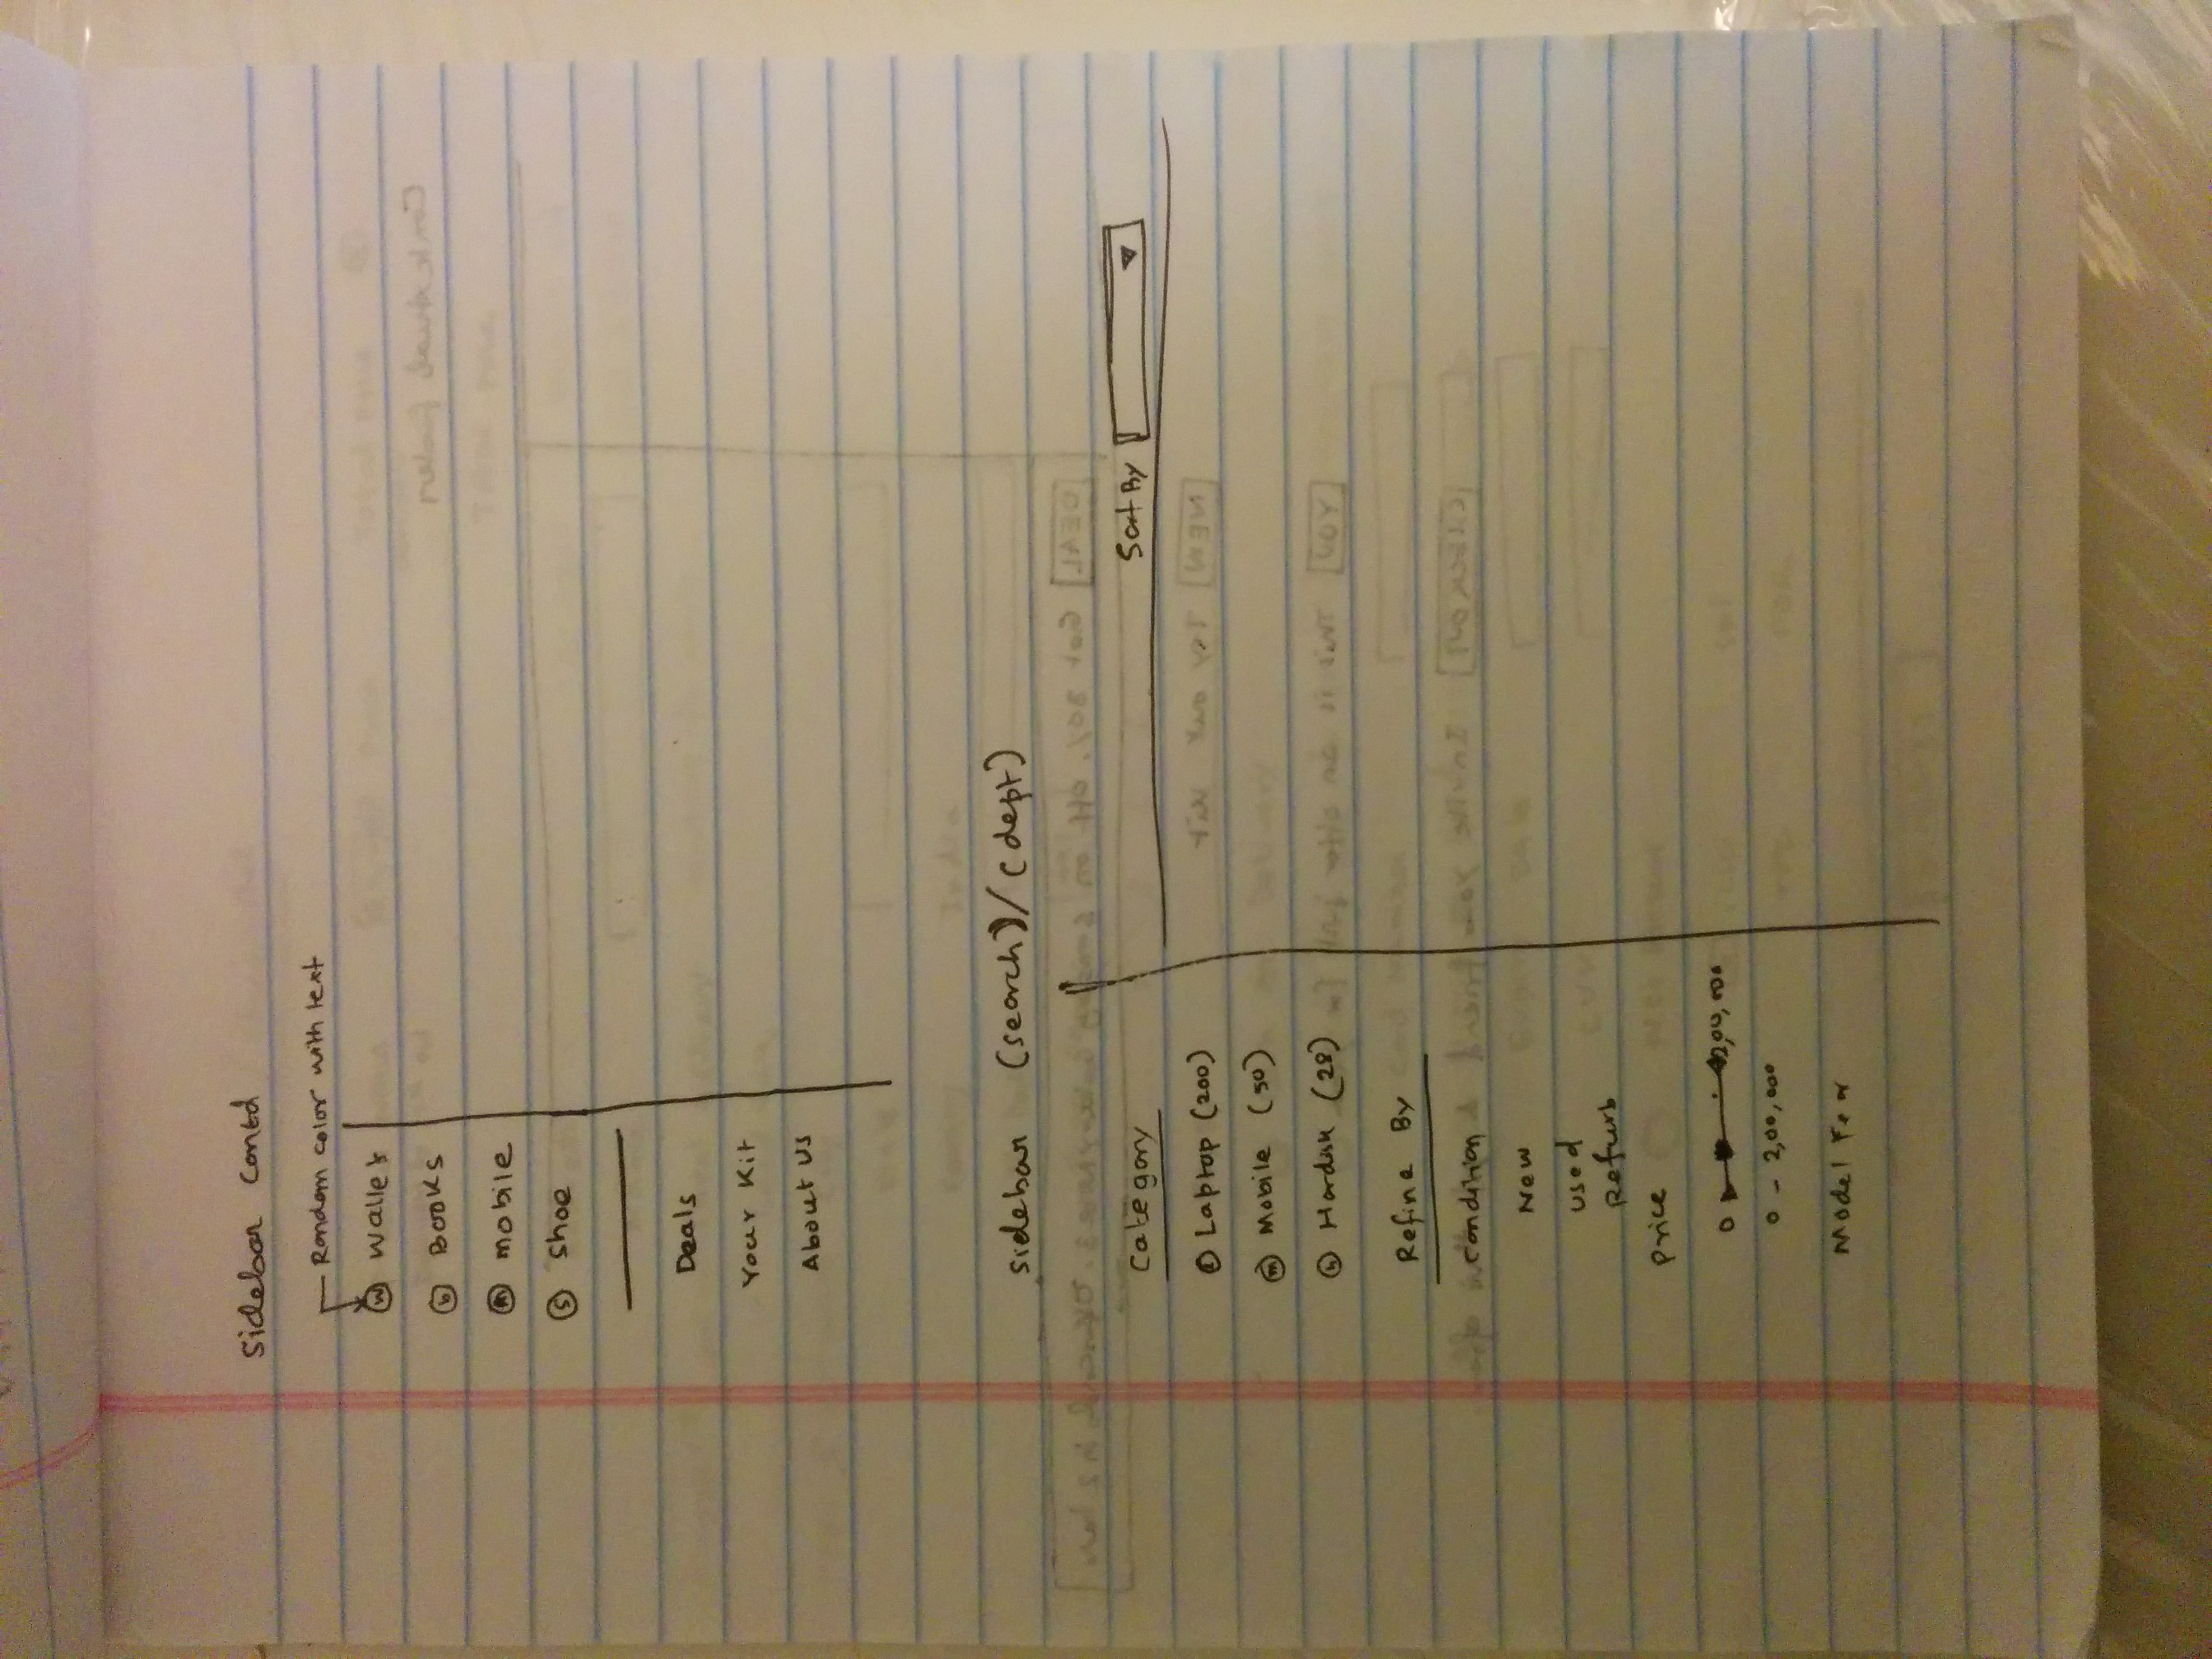 Sidebar Contd
Random color with text
w Wallet
b Books
m mobile
s Shoe
Deals
Your Kit
About Us
Sidebar (search)/(dept)
Category
Sort By
L Laptop (200)
m Mobile (50)
h Hardisk (28)
Refine By
condition
New
Used
Refurb
Price
0
0 - 2,00,000
Model